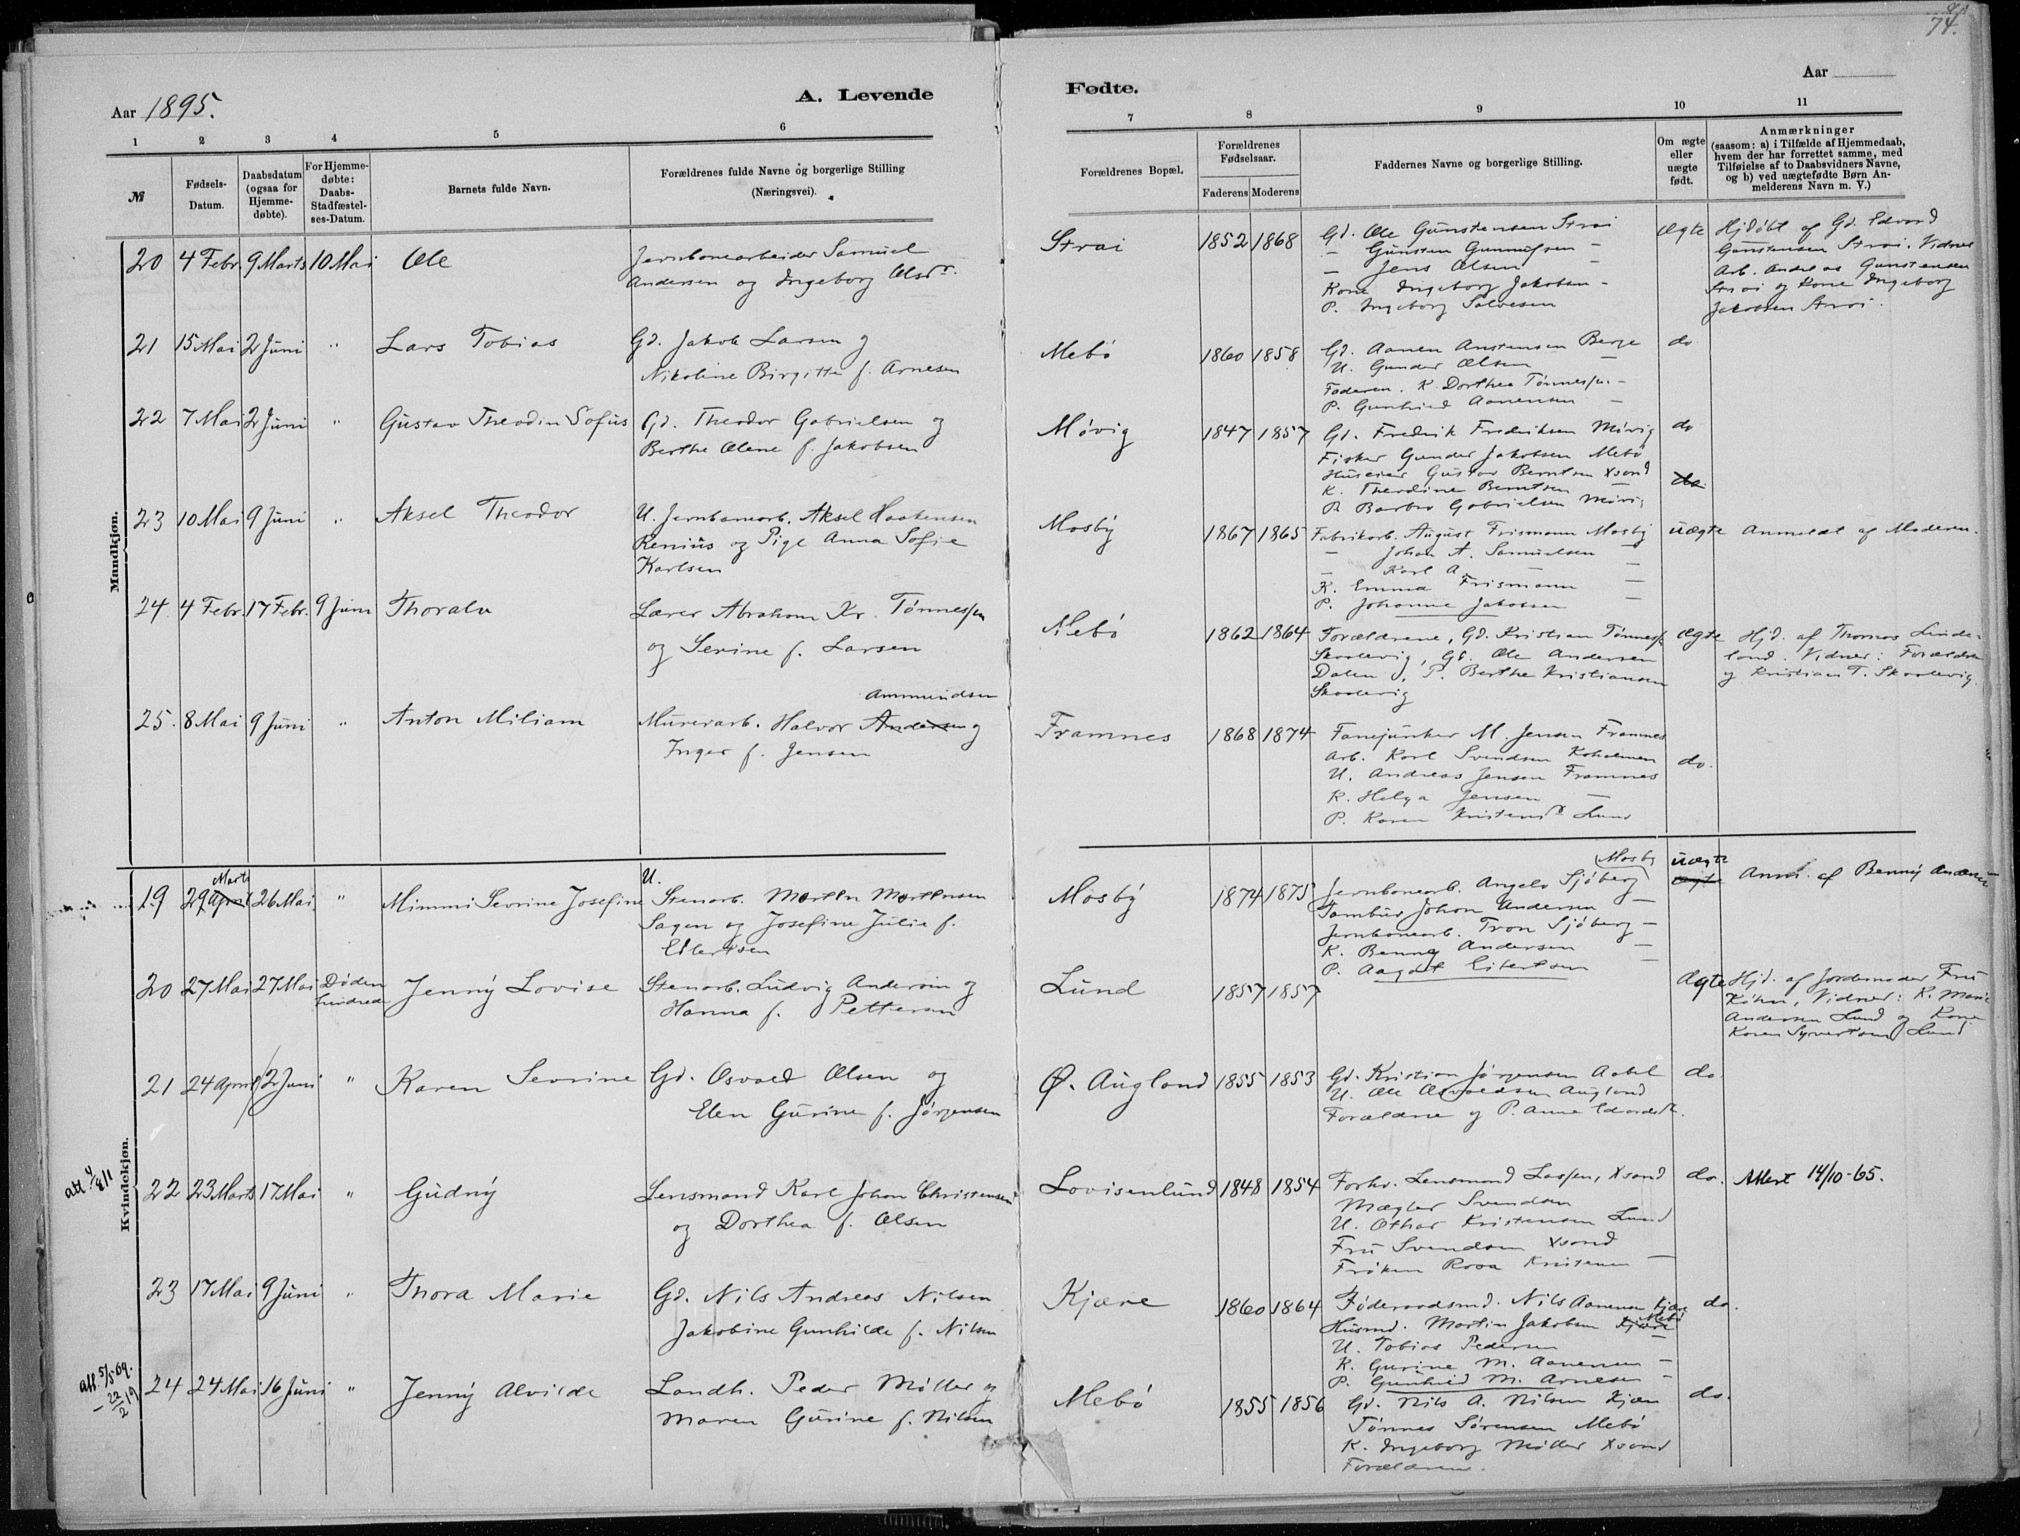 74.
Aar 1895.
A. Levende
Fødte.
Aar
1 2 3 4 5 6
7 8 9 10 11
№
Fødsels-Datum.
Daabsdatum (ogsaa for Hjemme-døbte).
For Hjemme-døbte: Daabs-Stadfæstel-ses-Datum.
Barnets fulde Navn.
Forældrenes fulde Navne og borgerlige Stilling (Næringsvei).
Forældrenes Bopæl.
Forældrenes Fødselsaar.
Faderens Moderens
Faddernes Navne og borgerlige Stilling.
Om ægte eller uægte født.
Anmærkninger
(saasom: a) i Tilfælde af Hjemmedaab,
hvem der har forrettet samme, med
Tilføielse af to Daabsvidners Navne,
og b) ved uægtefødte Børn An-
melderens Navn m. V.)
Mandkjøn.
20 4 Febr. 9 Marts 10 Mai Ole
Jernbanearbeider Samuel
Andersen og Ingeborg Olsdr.
Strai 1852 1868
Gd. Ole Gunstensen Strai
- Gunsten Gunnufsen -
- Jens Olsen -
Kone Ingeborg Jakobsen -
P. Ingeborg Salvesen
Ægte
Hjdøbt af Gd. Edvard
Gunstensen Strai. Vidner
Arb. Andreas Gunstensen
Strai og Kone Ingeborg
Jakobsen Strai.
21 15 Mai 2 Juni " Lars Tobias
Gd. Jakob Larsen og
Nikoline Birgitte f. Arnesen
Mebø 1860 1858
Gd. Aanen Anstensen Berge
U. Gunder Olsen -
Faderen. K. Dorthea Tønnesen -
P. Gunhild Aanensen -
do
22 7 Mai 2 Juni " Gustav Theodin Sofus
Gd. Theodor Gabrielsen og
Berthe Olene f. Jakobsen
Møvig 1847 1857
Gd. Fredrik Fredriksen Møvig
Fisker Gunder Jakobsen Mebø
Huseier Gustav Berntsen Xsand
K. Theodine Berntsen -
P. Barbro Gabrielsen Møvig
do
do
23 10 Mai 9 Juni " Aksel Theodor
U. Jernbanearb. Aksel Haakensen
Renius og Pige Anna Sofie
Karlsen
Mosby 1867 1865
Fabrikarb. August Frismann Mosby
- Johan A. Samuelsen -
- Karl A. -
K. Emma Frismann -
P. Johanne Jakobsen
uægte
Anmeldt af Moderen.
24. 4 Febr. 17 Febr. 9 Juni Thoralv
Lærer Abraham Kr. Tønnessen
og Serine f. Larsen
Mebø 1862 1864
Forældrene, Gd. Kristian Tønness.
Skaalevig, Gd. Ole Andersen
Dalen, P. Berthe Kristiansen
Skaalevig
Ægte
Hjd. af Thomas Linde-
land. Vidner: Forældren
og Kristian T. Skaalevig.
25. 8 Mai 9 Juni " Anton Miliam
Ammundsen
Murerarb. Halvor Andersen og
Inger f. Jensen
Framnes 1868 1874
Fanejunker M. Jensen Framnes
Arb. Karl Svendsen Kaholmen
U. Andreas Jensen Framnes
K. Helga Jensen -
P. Karen Kristensdr. Lund
do.
Kvindekjøn.
19 29 April Marts 26 Mai " Mimmi Sevrine Josefine
U.
Stenarb. Morten Mortensen
Sagen og Josefine Julie f.
Eilertsen
Mosby 1874 1875
Mosby
Jernbanearb. Angelo Sjøberg
Tambur Johan Andersen -
Jernbanearb. Tron Sjøberg -
K. Benny Andersen -
P. Aagot Eilertsen
uægte
ægte
Anm. af Benny Andersen
20 27 Mai 27 Mai Døden
hindred
Jenny Lovise
Stenarb. Ludvig Andersen og
Hanna f. Pettersen
Lund 1857 1857
Ægte
Hjd. af Jordemoder Fru
Køhn, Vidner: K. Marie
Andersen Lund og Kone
Karen Syvertsen Lund
21 24 April 2 Juni " Karen Sevrine
Gd. Osvald Olsen og
Elen Gurine f. Jørgensen
Ø. Augland 1855 1853
Gd. Kristian Jørgensen Aabel
U. Ole Osvaldsen Augland
Forældrene og P. Anne Edvardsdr.
do.
22 23 Marts 17 Mai " Gudny
Lensmand Karl Johan Christensen
og Dorthea f. Olsen
Lovisenlund 1848 1854
Forhv. Lensmand Lassen, Xsand
Mægler Svendsen
U. Othar Kristensen Lund
Fru Svendsen Xsand
Frøken Rosa Kristensen -
do.
Attest 14/10-65.
23 17 Mai 9 Juni " Thora Marie
Gd. Nils Andreas Nilsen
Jakobine Gunhilde f. Nilsen
Kjære 1860 1864
Føderaadsmd. Nils Aanensen Kjære
Husmd. Martin Jakobsen Kjære Mebø
U. Tobias Pedersen -
K. Gurine M. Aanensen -
P. Gunhild M. Arnesen -
do.
att. 5/5 69.
- 22/2 19
24 24 Mai 16 Juni " Jenny Alvilde
Landh. Peder Møller og
Maren Gurine f. Nilsen
Mebø 1855 1856
Gd. Nils A. Nilsen Kjære
Tønnes Sørensen Mebø
K. Ingeborg Møller Xsand
Forældrene.
do.